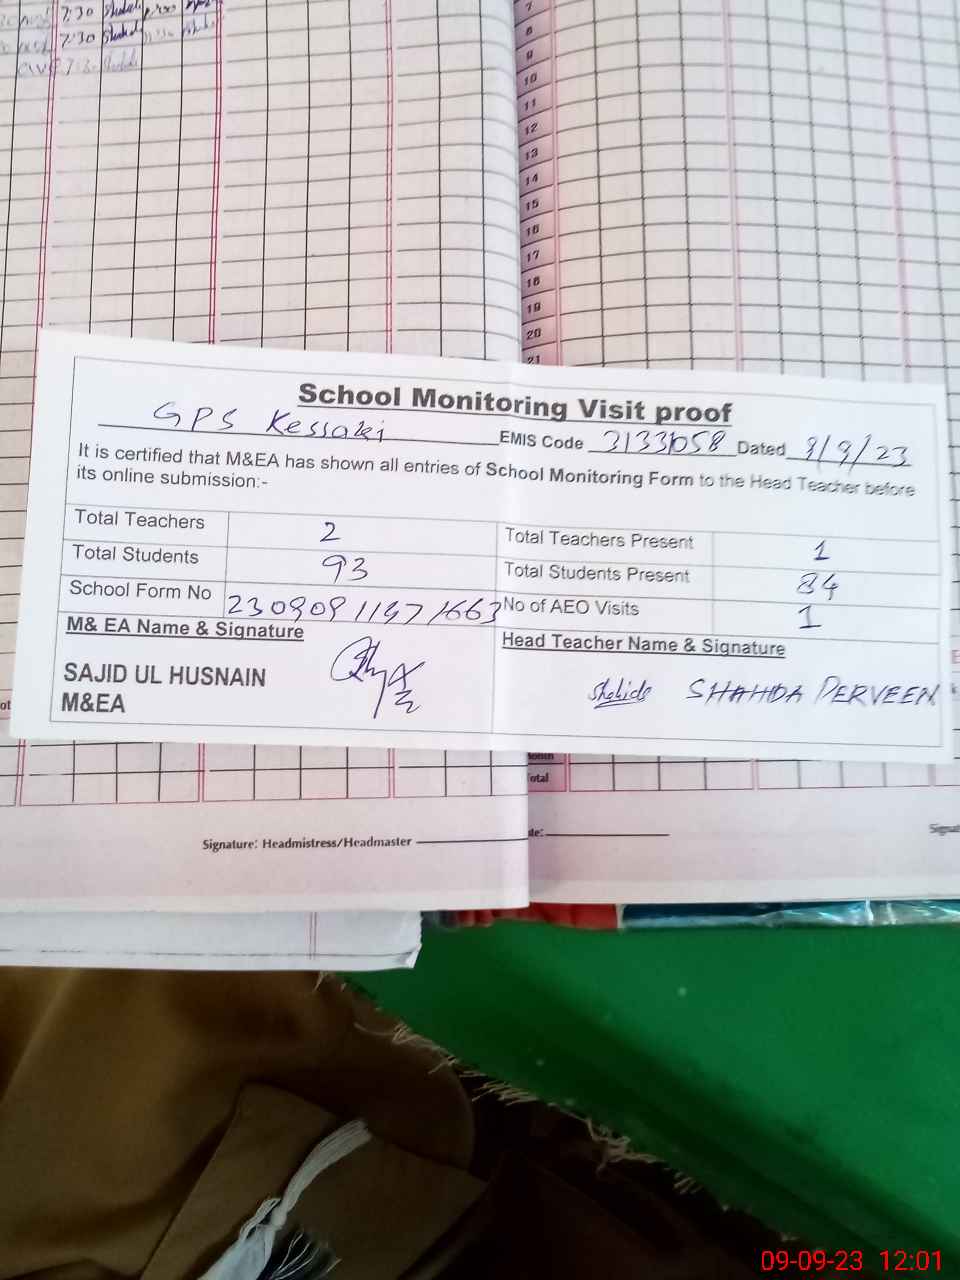 7:30
7:30
7
8
9
10
11
12
13
14
15
16
17
18
19
20
21
School Monitoring Visit proof
GPS Kessaki EMIS Code 3133058 Dated 9/9/23
It is certified that M&EA has shown all entries of School Monitoring Form to the Head Teacher before
its online submission:-
Total Teachers 2 Total Teachers Present 1
Total Students 93 Total Students Present 84
School Form No No of AEO Visits 1
M& EA Name & Signature Head Teacher Name & Signature
SAJID UL HUSNAIN Shahida SHAHIDA PERVEEN
M&EA
Total
Signature: Headmistress/Headmaster
09-09-23 12:01